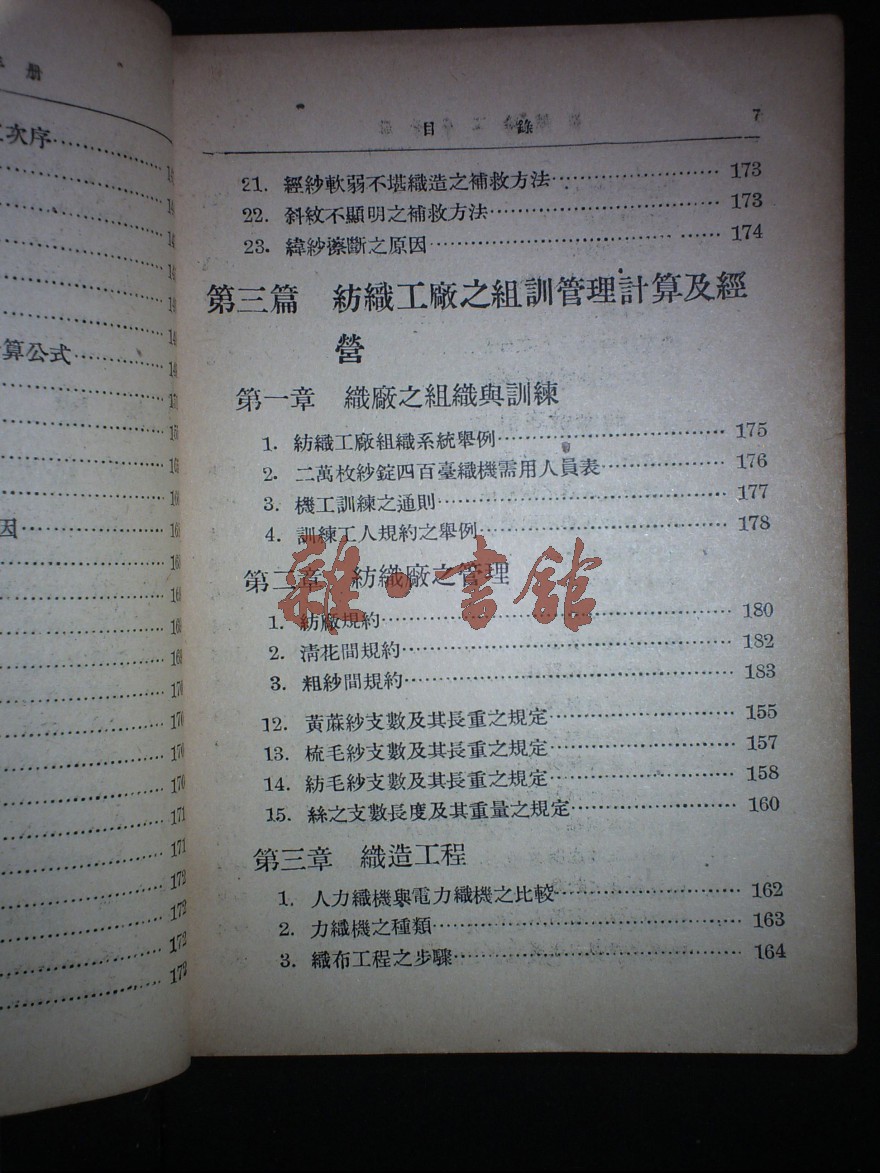 册
次序
14
14
14
14
算公式
因
170
170
170
170
171
171
172
172
172
172
目 錄 7
21. 經紗軟弱不堪織造之補救方法 173
22. 斜紋不顯明之補救方法 173
23. 緯紗擦斷之原因 174
第三篇 紡織工廠之組訓管理計算及經
營
第一章 織廠之組織與訓練
1. 紡織工廠組織系統舉例 175
2. 二萬枚紗錠四百臺織機需用人員表 176
3. 機工訓練之通則 177
4. 訓練工人規約之舉例 178
第二章 紡織廠之管理
1. 紡廠規約 180
2. 淸花間規約 182
3. 粗紗間規約 183
12. 黃蔴紗支數及其長重之規定 155
13. 梳毛紗支數及其長重之規定 157
14. 紡毛紗支數及其長重之規定 158
15. 絲之支數長度及其重量之規定 160
第三章 織造工程
1. 人力織機與電力織機之比較 162
2. 力織機之種類 163
3. 織布工程之步驟 164
雜·書館